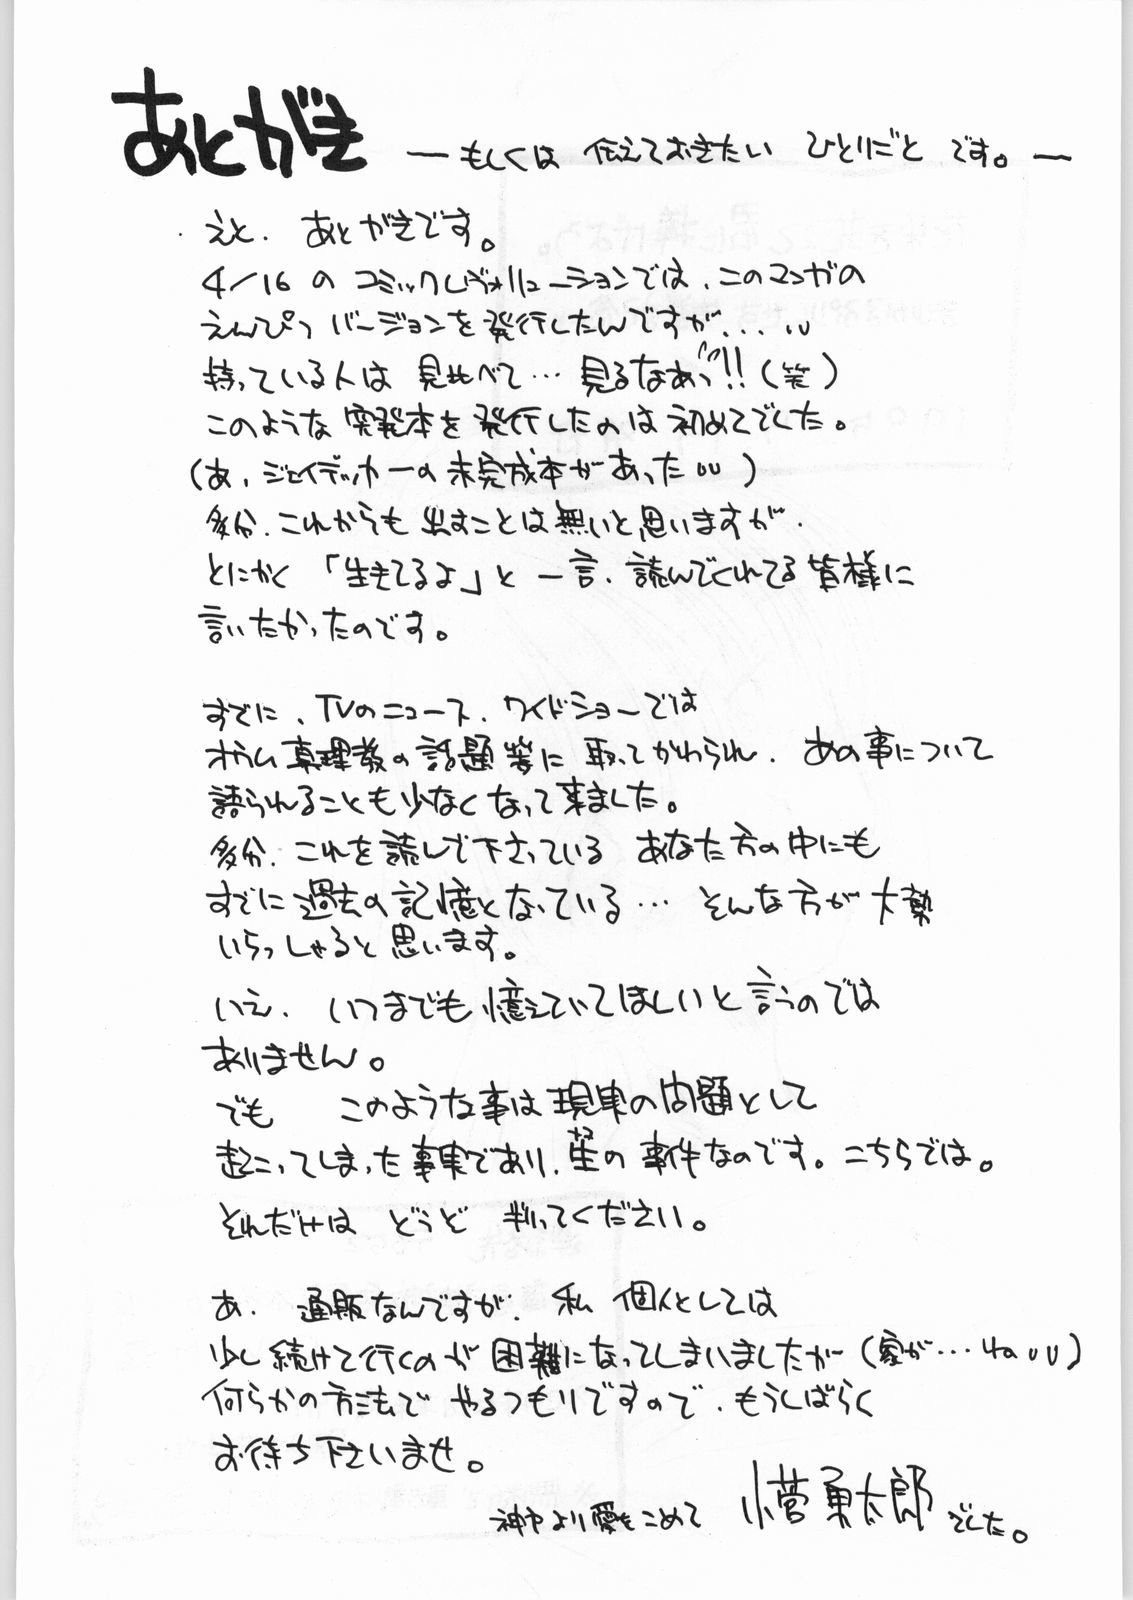 あとがき ―もしくは 伝えておきたい ひとりごと です。―
えと、あとがきです。
4/16 の コミックレヴォリューションでは、このマンガの
えんぴつ バージョンを発行したんですが...
持っている人は 見比べて… 見るなあっ!!(笑)
このような 突発本を発行したのは初めてでした。
(あ、ジェイデッカーの未完成本があった)
多分、これからも 出すことは無いと思いますが、
とにかく 「生きてるよ」と 一言、読んでくれてる皆様に
言いたかったのです。
すでに、TVのニュース、ワイドショーでは
オウム真理教の話題等に 取ってかわられ、あの事について
語られることも少なくなって来ました。
多分、これを読んで下さっている あなた方の中にも
すでに過去の記憶となっている… そんな方が大勢
いらっしゃると思います。
いえ、いつまでも憶えていてほしいと言うのでは
ありません。
でも このような事は現実の問題として
起こってしまった事実であり、生の事件なのです。こちらでは。
それだけは どうぞ 判ってください。
あ、通販なんですが、私 個人としては
少し続けて行くのが困難になってしまいましたが(家が…ね)
何らかの方法で やるつもりですので、もうしばらく
お待ち下さいませ。
神戸より愛をこめて 小菅勇太郎でした。